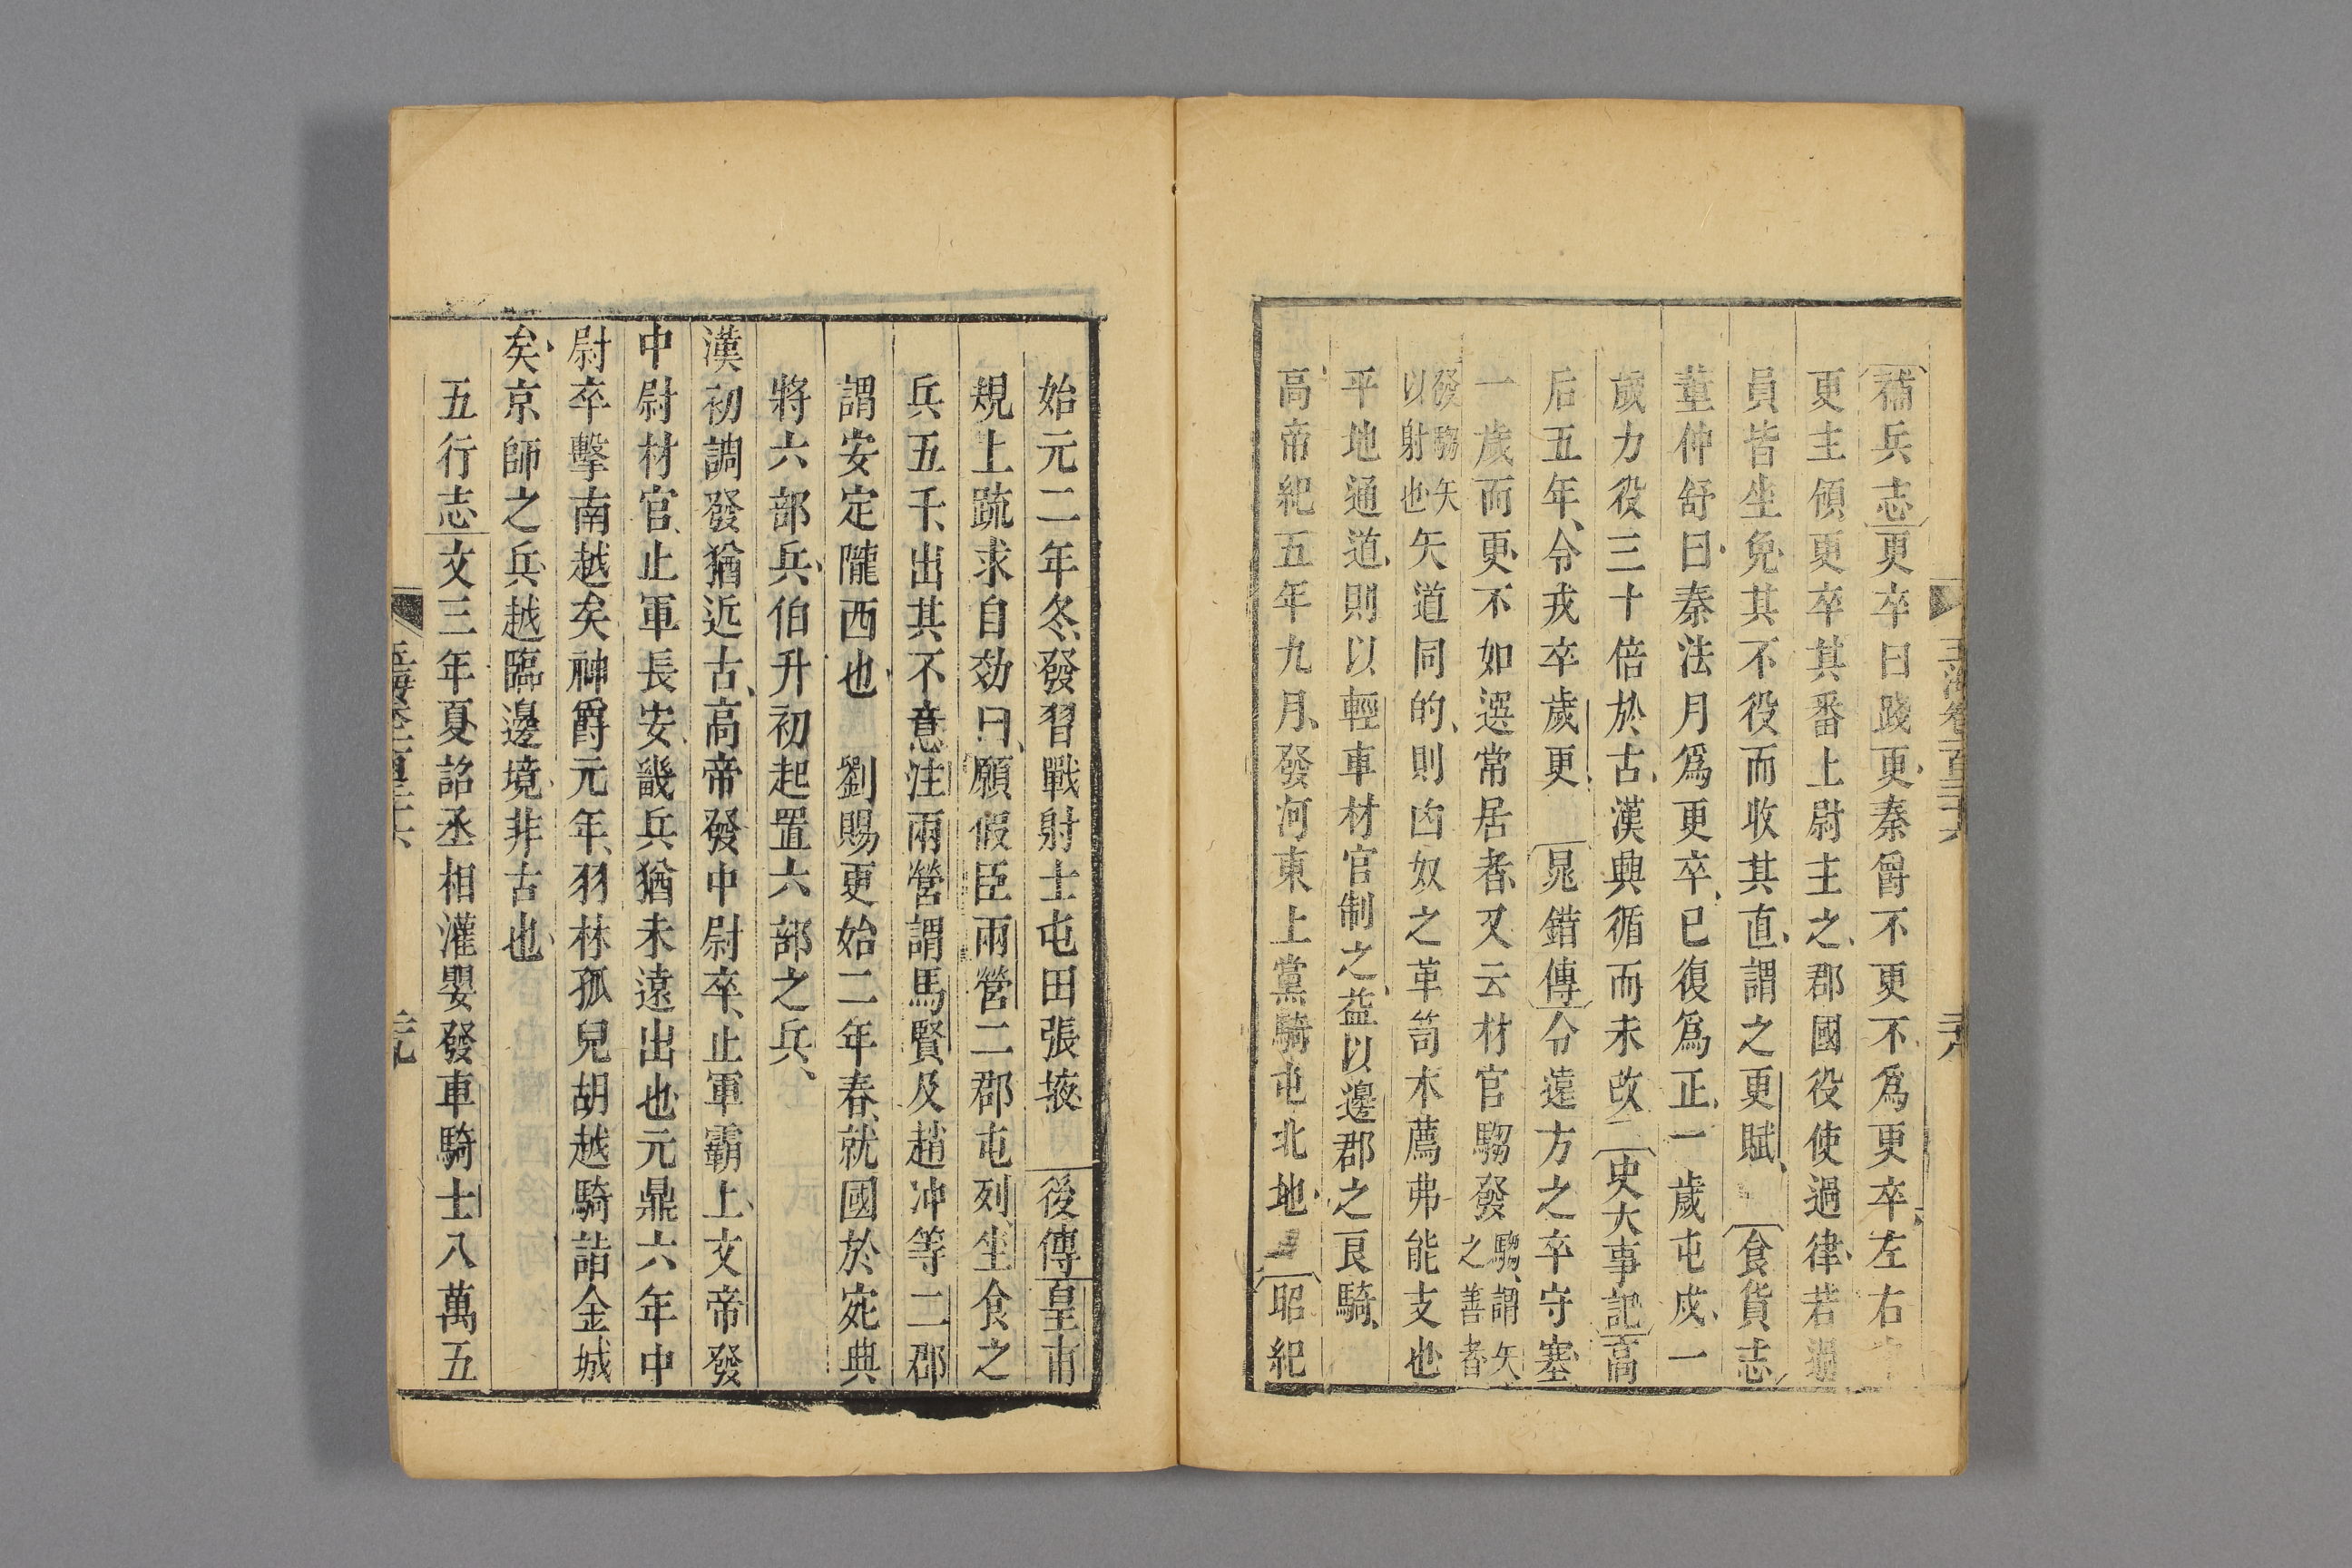 補兵志更卒曰踐更秦爵不更不爲更卒左右
更主領更卒其番上尉主之郡國役使過律若
員皆坐免其不役而收其直謂之更賦 食貨志
董仲舒曰秦法月爲更卒已復爲正一歲屯戍一
歲力役三十倍於古漢興循而未改 史大事記高
后五年令戎卒歲更 晁錯傳令遠方之卒守塞
一歲而更不如選常居者又云材官騶發騶謂矢之善者
發騶矢以射也矢道同的則凶奴之革笥木薦弗能支也
平地通道則以輕車材官制之益以邊郡之良騎
高帝紀五年九月發河東上黨騎屯北地 昭紀
玉海卷一百三十六
三十八
始元二年冬發習戰射士屯田張掖 後傳皇甫
規上疏求自効曰願假臣兩營二郡屯列坐食之
兵五千出其不意注兩營謂馬賢及趙冲等二郡
謂安定隴西也 劉賜更更始二年春就國於宛典
將六部兵伯升初起置六部之兵
漢初調發猶近古高帝發中尉卒止軍霸上文帝發
中尉材官止軍長安畿兵猶未遠出也元鼎六年中
尉卒擊南越矣神爵元年羽林孤兒胡越騎詣金城
矣京師之兵越臨邊境非古也
五行志文三年夏詔丞相灌嬰發車騎士八萬五
玉海卷一百三十六
三十九